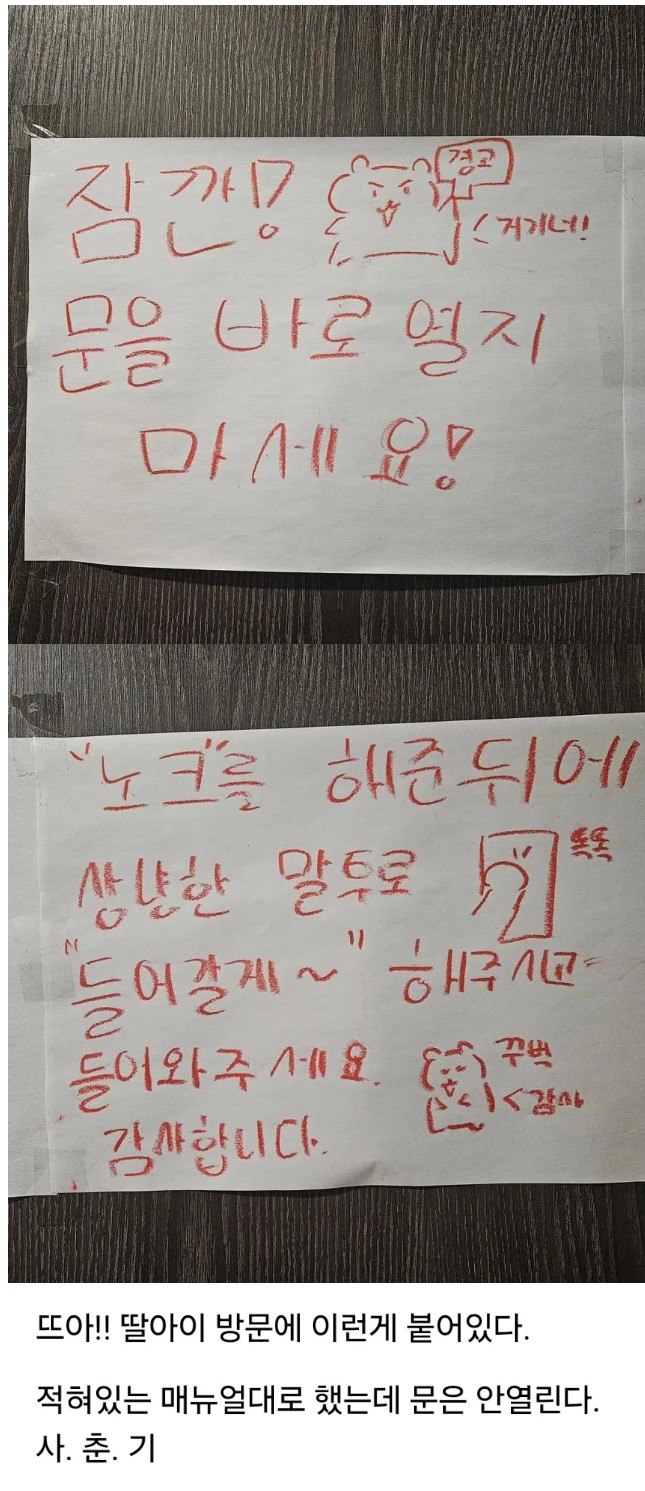 잠깐!
경고
거기너!
문을 바로 열지
마세요!
"노크"를 해준뒤에
생냥한 말투로
똑똑
"들어갈게~" 해주시고
들어와주세요.
꾸벅
감사
감사합니다.
뜨아!! 딸아이 방문에 이런게 붙어있다.
적혀있는 매뉴얼대로 했는데 문은 안열린다.
사. 춘. 기